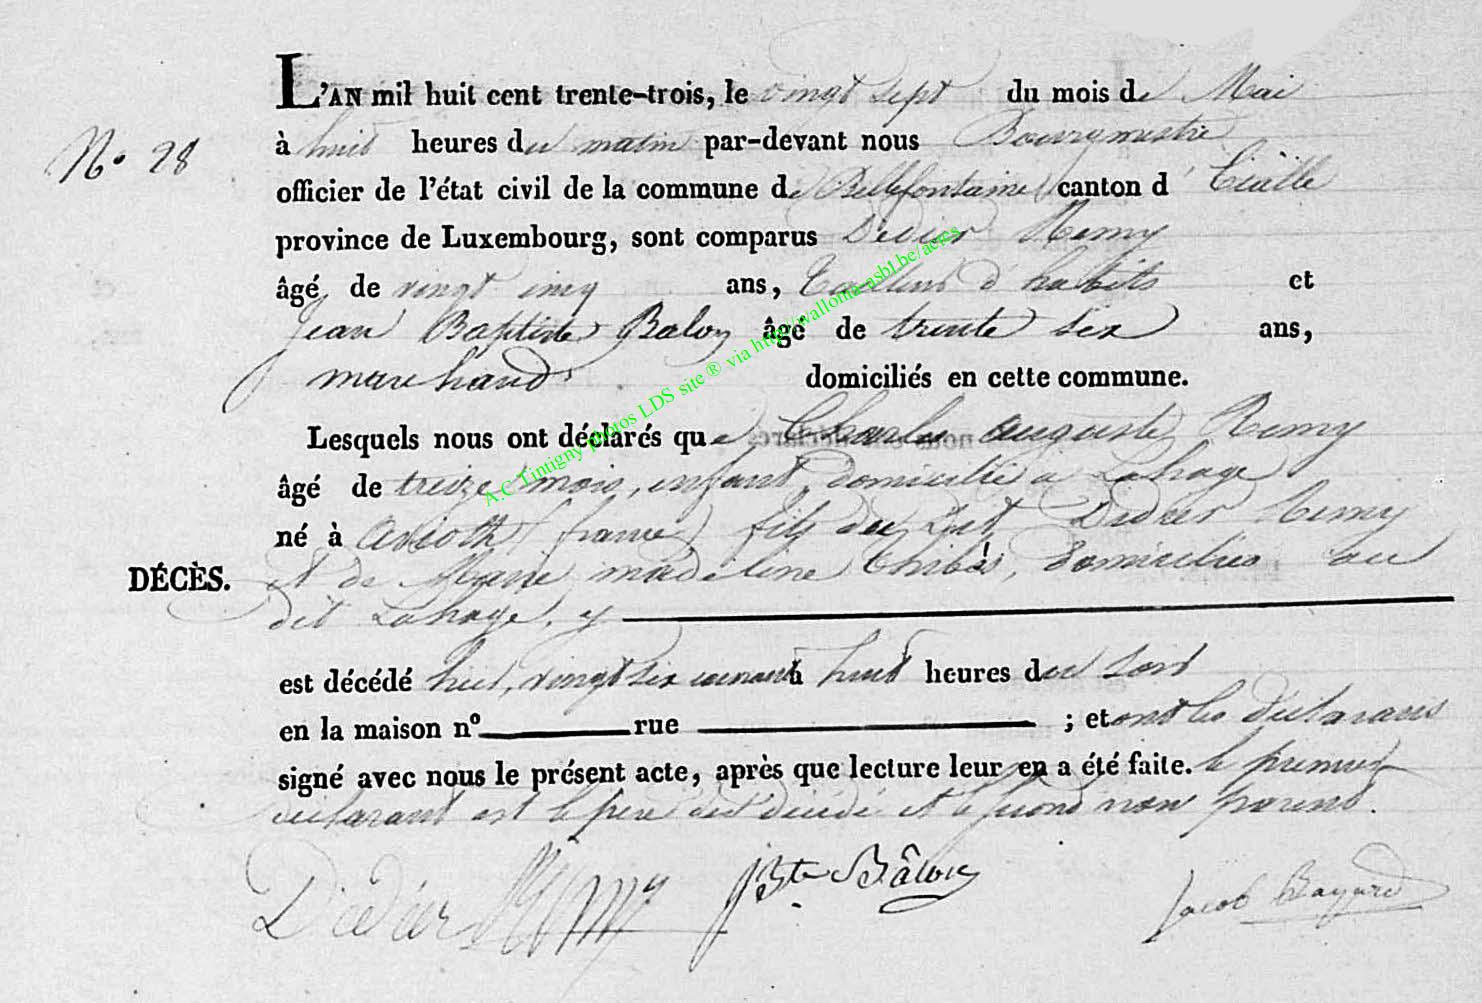 L'AN mil huit cent trente-trois, le vingt sept du mois de Mai
N° 28
à huit heures du matin par-devant nous Bourgmestre
officier de l'état civil de la commune de Bellefontaine canton d'
province de Luxembourg, sont comparus Didier Remy
âgé de vingt cinq ans, Tailleur d'habits et
Jean Baptiste Baloy âgé de trente six ans,
marchand, domiciliés en cette commune.
Lesquels nous ont déclarés que Charles Auguste Remy
âgé de treize mois, enfant, domicilié à Lahage
né à Avioth (france) fils du Didier Remy
et de Marie madeleine domiciliés au
DÉCÈS.
dit Lahage, y
est décédé vingt six courant à huit heures du soir
en la maison n° rue ; et ont les déclarans
signé avec nous le présent acte, après que lecture leur en a été faite. le premier
déclarant est le père du décédé et le second non parent.
Didier Remy JBte Bâloy Jacob Bayard
A.C Tintigny photos LDS site ® via http://wallonia-asbl.be/actes